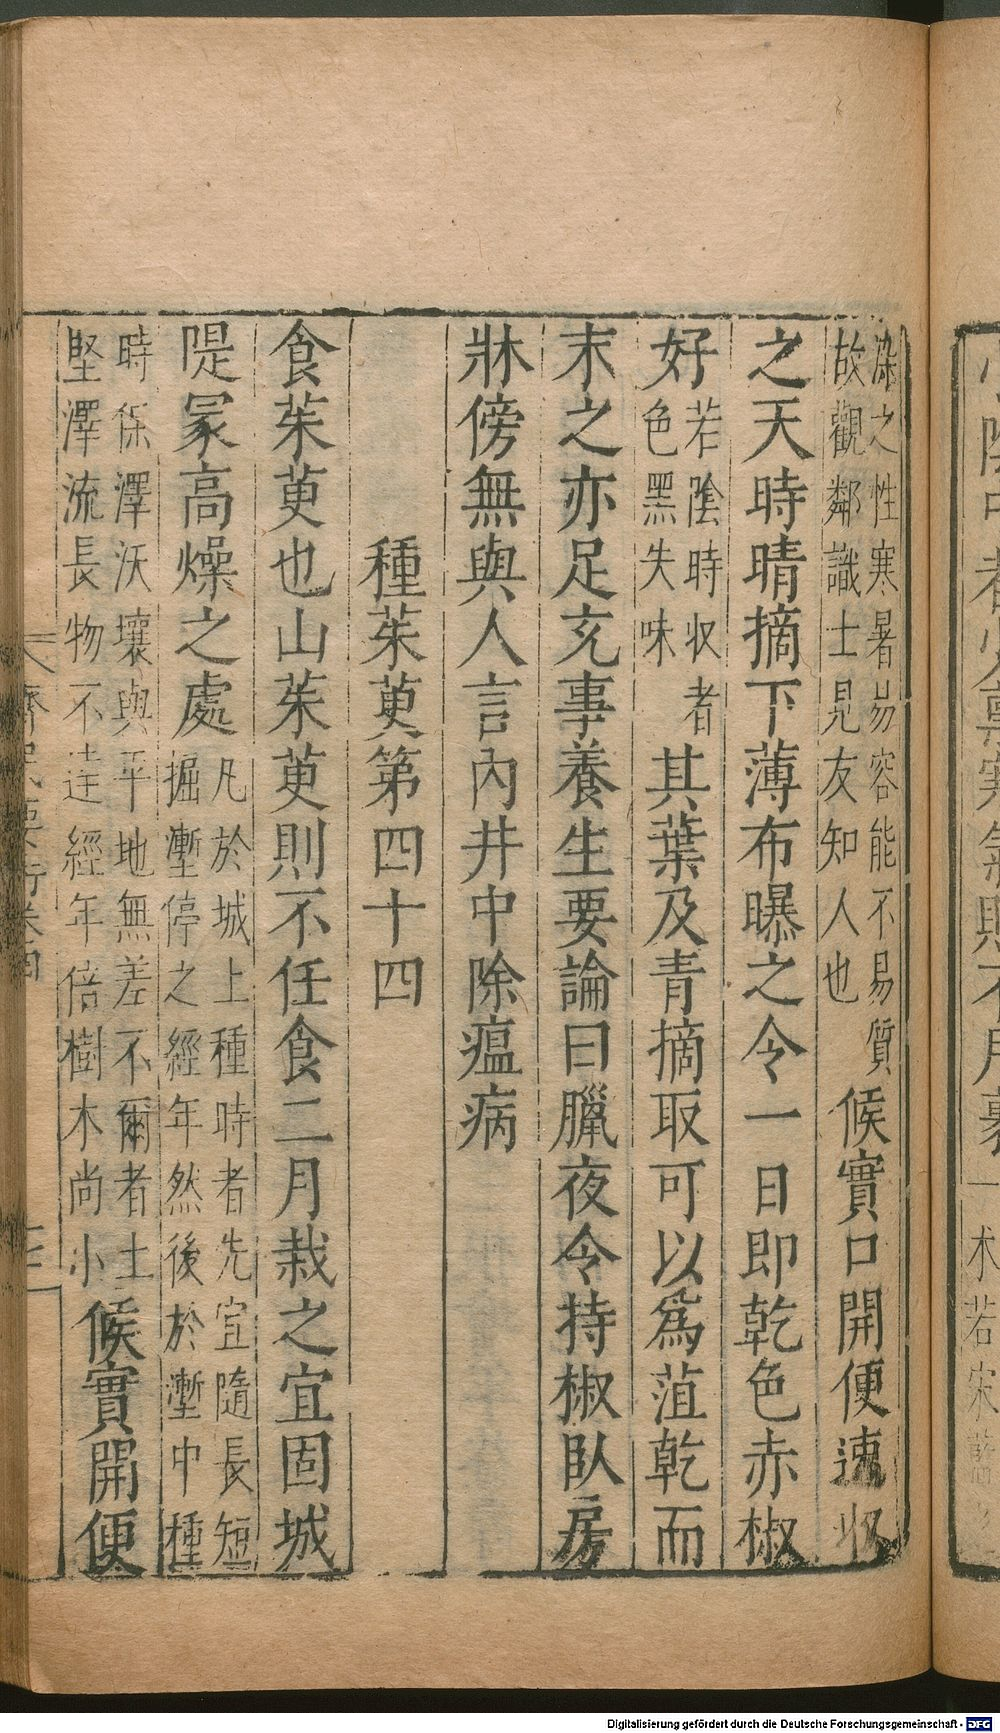 染之性寒暑易容能不易質
故觀鄰識士見友知人也
候實口開便速收
之天時晴摘下薄布曝之令一日即乾色赤椒
好
若陰時收者
色黑失味
其葉及青摘取可以爲菹乾而
末之亦足充事養生要論曰臘夜令持椒臥房
牀傍無與人言內井中除瘟病
種茱萸第四十四
食茱萸也山茱萸則不任食二月栽之宜固城
隄冢高燥之處
凡於城上種時者先宜隨長短
掘壍停之經年然後於壍中種
時保澤沃壤與平地無差不爾者土
堅澤流長物不達經年倍樹木尚小
候實開便
Digitalisierung gefördert durch die Deutsche Forschungsgemeinschaft - DFG